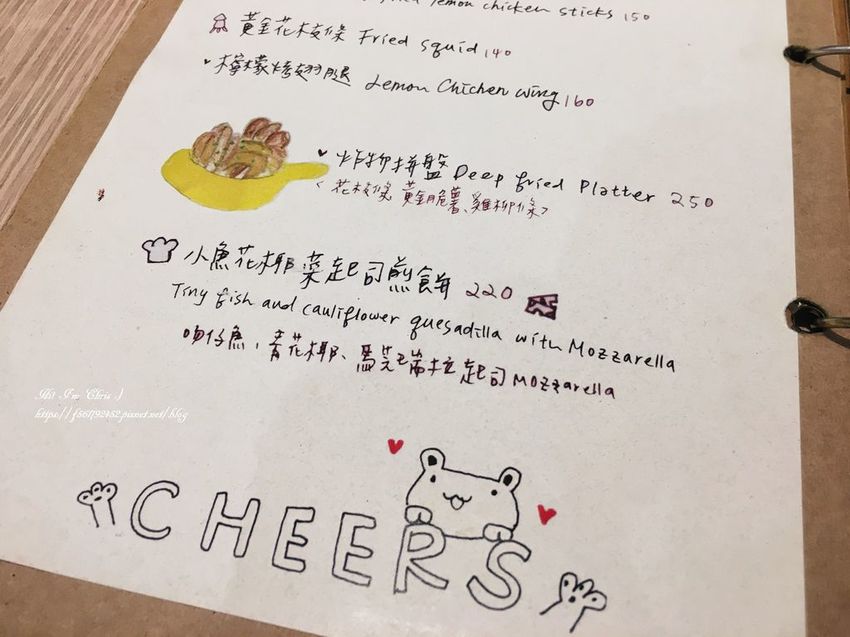 lemon chicken sticks 150
黃金花枝條 Fried squid 140
檸檬烤翅腿 Lemon Chichen wing 160
炸物拼盤 Deep fried Platter 250
<花枝條、黃金脆薯、雞柳條>
小魚花椰菜起司煎餅 220
Tiny fish and cauliflower quesadilla with Mozzarella
吻仔魚、青花椰、馬芝瑞拉起司 Mozzarella
Hi! I'm Chris :)
CHEERS